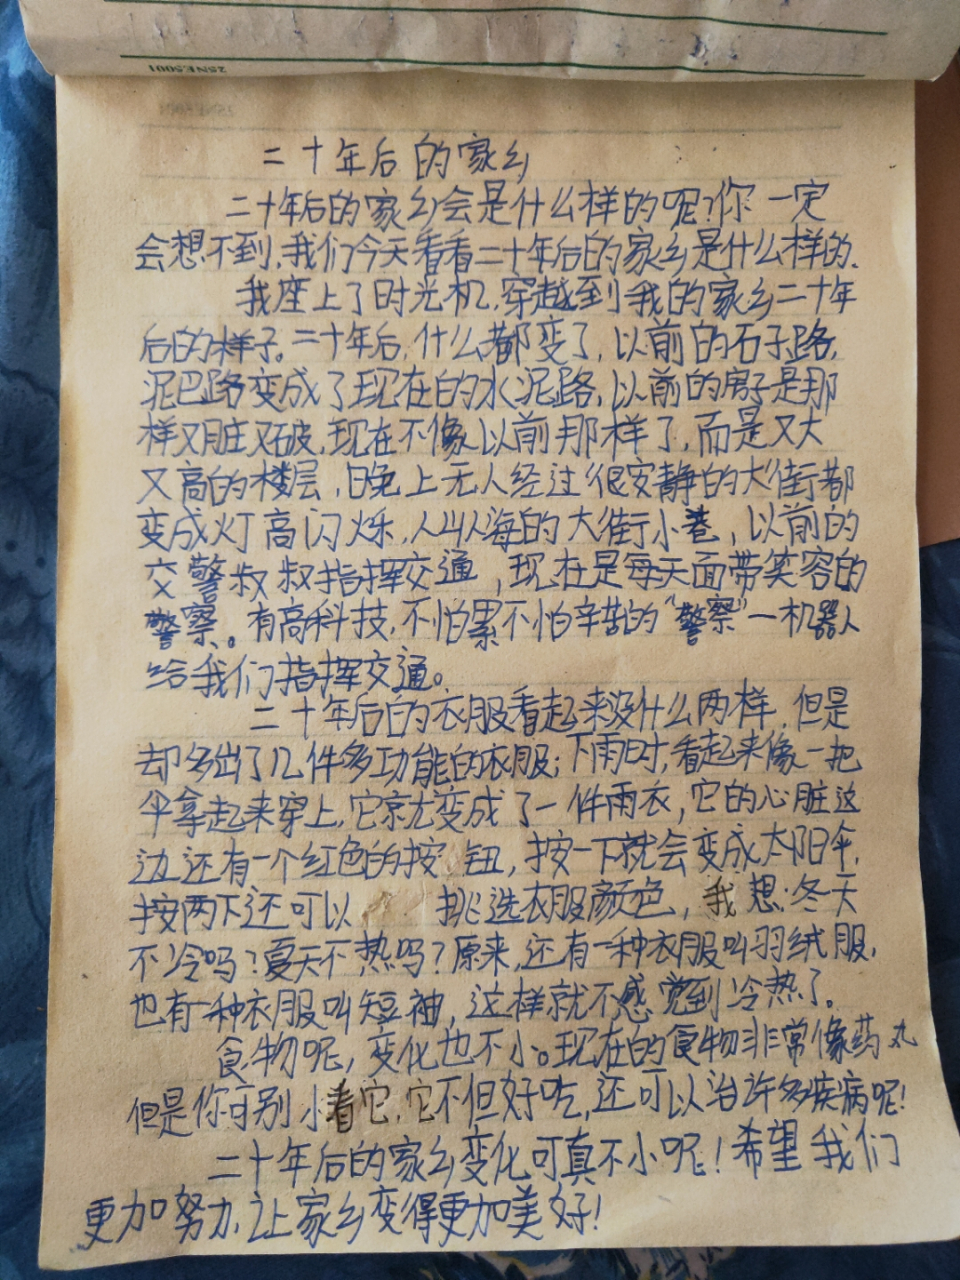 25NE5001
二十年后的家乡
二十年后的家乡会是什么样的呢?你一定
会想不到,我们今天看看二十年后的家乡是什么样的.
我座上了时光机,穿越到我的家乡二十年
后的样子。二十年后,什么都变了,以前的石子路,
泥巴路变成了现在的水泥路,以前的房子是那
样又脏又破,现在不像以前那样了,而是又大
又高的楼层,晚上无人经过很安静的大街都
变成灯高闪烁,人山人海的大街小巷,以前的
交警叔叔指挥交通,现在是每天面带笑容的
警察。有高科技,不怕累不怕辛苦的“警察”一机器人
给我们指挥交通。
二十年后的衣服看起来没什么两样,但是
却多出了几件多功能的衣服;下雨时,看起来像一把
伞拿起来穿上,它就变成了一件雨衣,它的心脏这
边还有一个红色的按钮,按一下就会变成太阳伞,
按两下还可以挑选衣服颜色,我想:冬天
不冷吗?夏天不热吗?原来,还有一种衣服叫羽绒服,
也有一种衣服叫短袖,这样就不感觉到冷热了。
食物呢,变化也不小。现在的食物非常像药丸
但是你可别小看它,它不但好吃,还可以治许多疾病呢!
二十年后的家乡变化可真不小呢!希望我们
更加努力,让家乡变得更加美好!